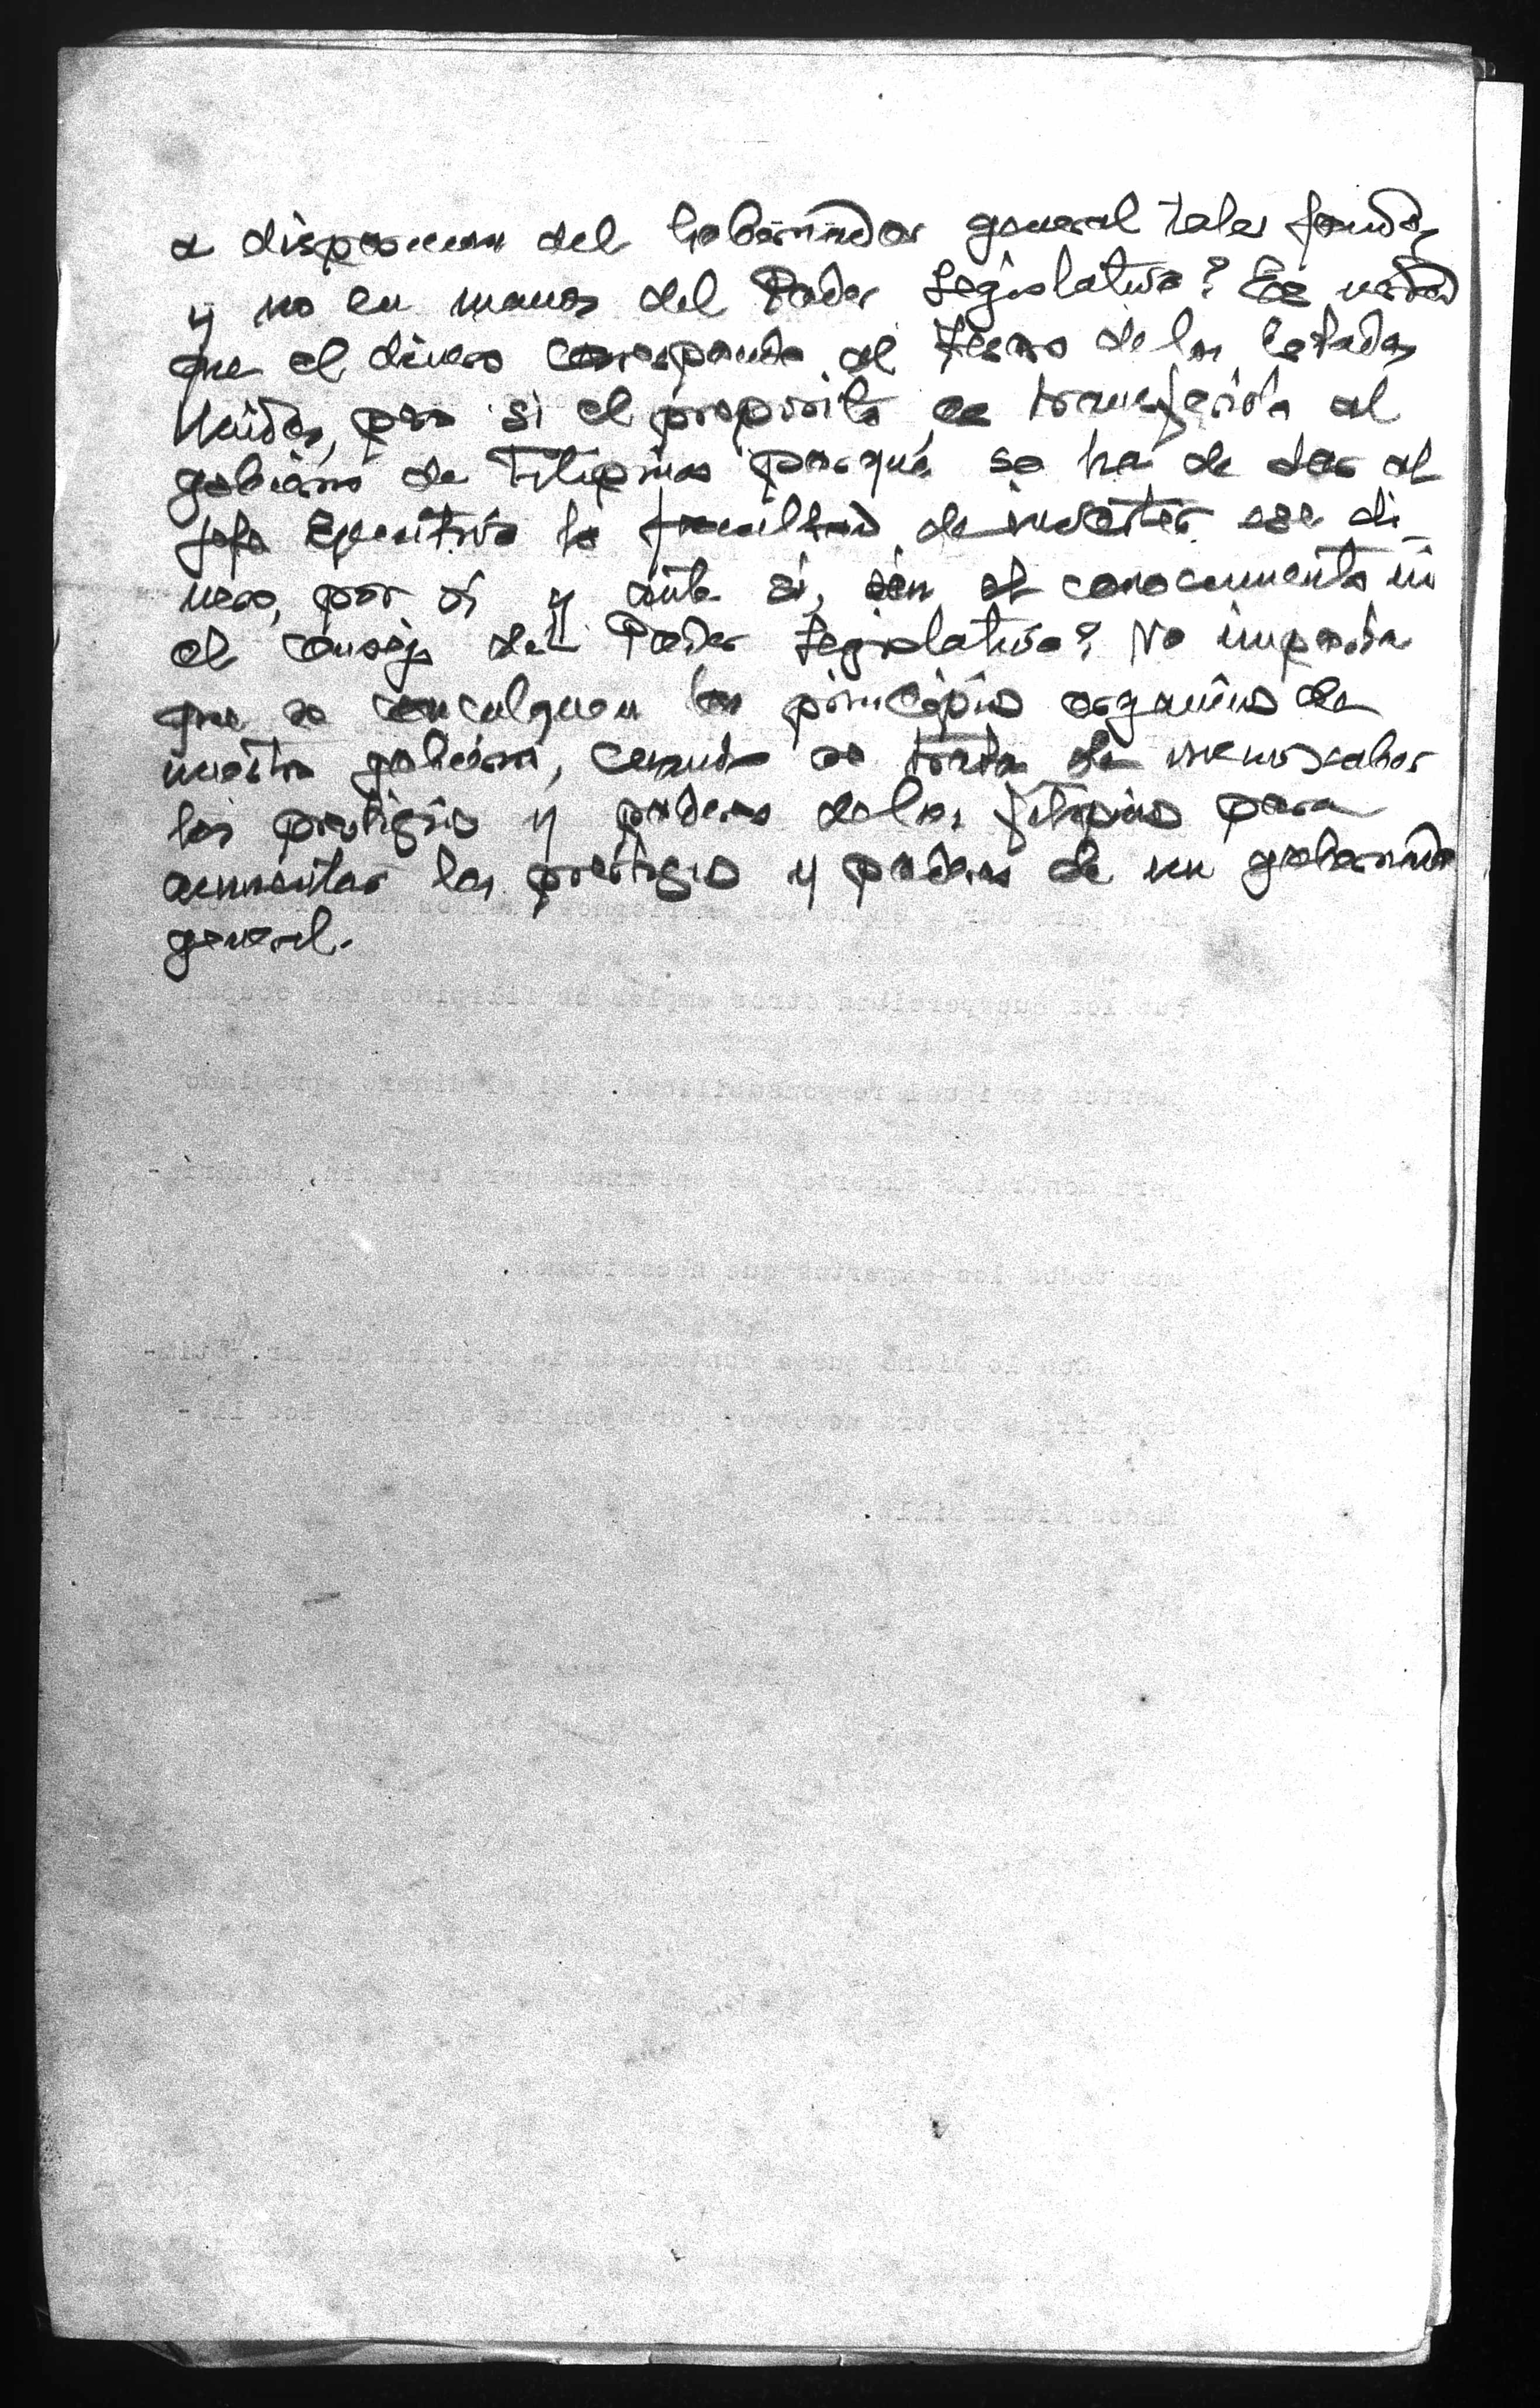 a disposicion del Gobernador general tales fondos
y no en manos del Poder Legislativo? Es verdad
que el dinero corresponde al Tesoro de los Estados
Unidos, pero si el proposito es transferirlo al
gobierno de Filipinas porqué se ha de dar al
Jefe Ejecutivo la facultad de invertir ese di-
nero, por sí y ante sí, sin el conocimiento ni
el consejo del Poder Legislativo? No importa
que se conculquen los principios organicos de
nuestro gobierno, cuando se trata de menoscabar
los prestigios y poderes de los filipinos para
aumentar los prestigios y poderes de un gobernador
general.